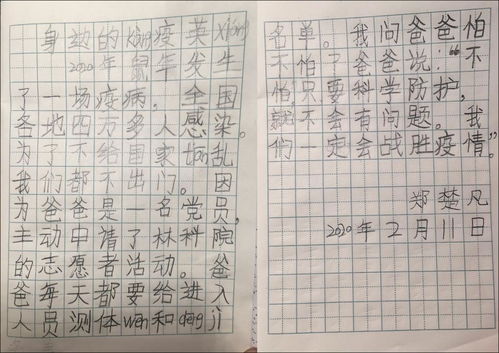 身边的kàng疫英xióng
2020年鼠年发生
了一场疫病，全国
各地四方多人感染。
为了不给国家tiān乱
我们都不出门。因
为爸爸是一名党员，
主动申请了林科院
的志愿者活动。爸
爸每天都要给进入
人员测体wēn和dēng jì
名单。我问爸爸怕
不怕？爸爸说：“不
怕只要科学防护，
就不会有问题。我
们一定会战胜疫情”。
郑楚凡
2020年2月11日